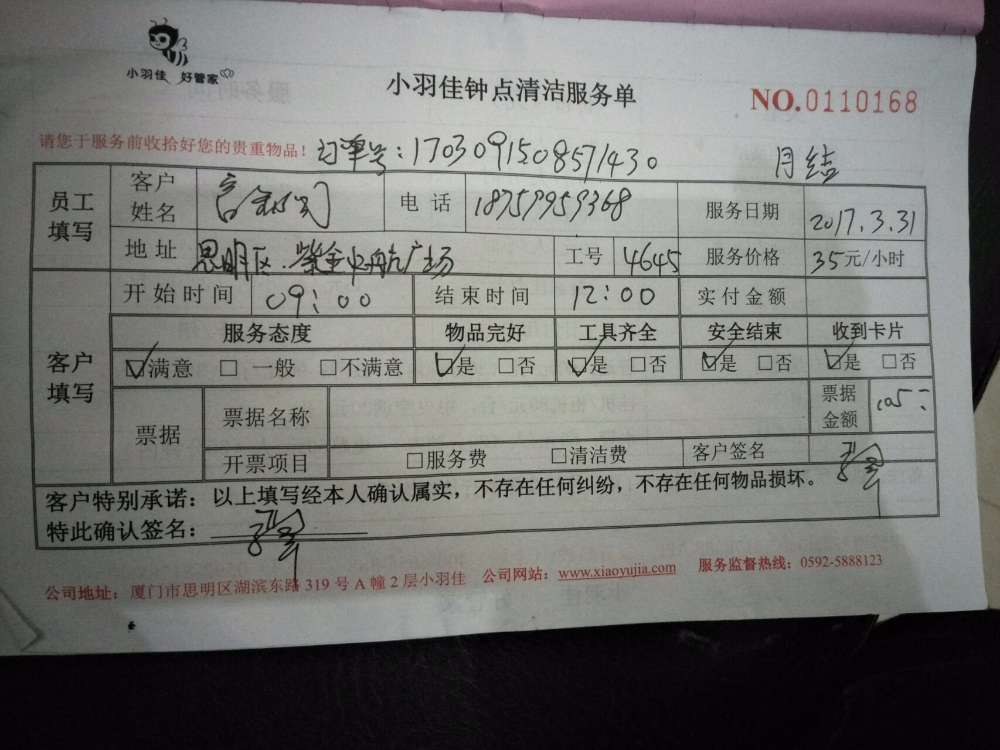 小羽佳 好管家
小羽佳钟点清洁服务单
NO.0110168
请您于服务前收拾好您的贵重物品！ 订单号：1703091508571430 月结
员工填写 客户姓名 电话 18759959368 服务日期 2017.3.31
地址 思明区.紫金中航广场 工号 4645 服务价格 35元/小时
客户填写 开始时间 09：00 结束时间 12：00 实付金额
服务态度 物品完好 工具齐全 安全结束 收到卡片
☑满意 □一般 □不满意 ☑是 □否 ☑是 □否 ☑是 □否 ☑是 □否
票据 票据名称 票据金额 105
开票项目 □服务费 □清洁费 客户签名
客户特别承诺：以上填写经本人确认属实，不存在任何纠纷，不存在任何物品损坏。
特此确认签名：
公司地址：厦门市思明区湖滨东路319号A幢2层小羽佳 公司网站：www.xiaoyujia.com 服务监督热线：0592-5888123